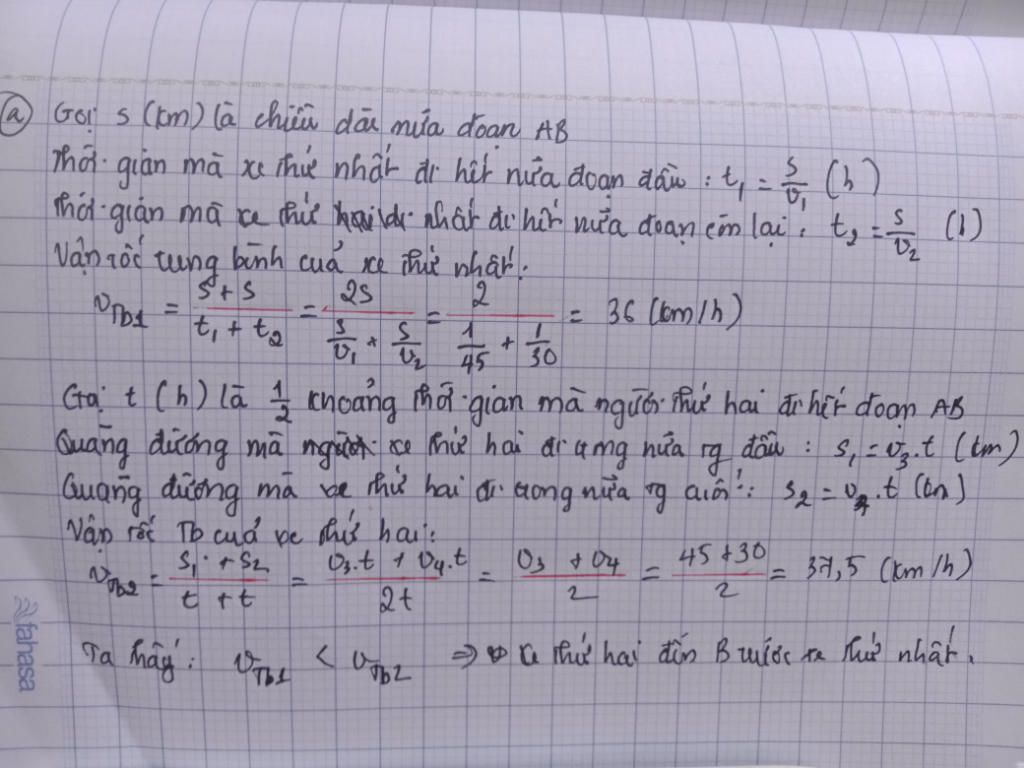 a Gọi s (km) là chiều dài nửa đoạn AB
Thời gian mà xe thứ nhất đi hết nửa đoạn đầu : t₁ = s/v₁ (h)
Thời gian mà xe thứ nhất đi hết nửa đoạn còn lại : t₂ = s/v₂ (1)
Vận tốc trung bình của xe thứ nhất :
v_Tb1 = (s + s)/(t₁ + t₂) = 2s/(s/v₁ + s/v₂) = 2/(1/45 + 1/30) = 36 (km/h)
Gọi t (h) là 1/2 khoảng thời gian mà người thứ hai đi hết đoạn AB
Quãng đường mà xe thứ hai đi trong nửa tg đầu : s₁ = v₃.t (km)
Quãng đường mà xe thứ hai đi trong nửa tg cuối : s₂ = v₄.t (km)
Vận tốc Tb của xe thứ hai :
v_Tb2 = (s₁ + s₂)/(t + t) = (v₃.t + v₄.t)/2t = (v₃ + v₄)/2 = (45 + 30)/2 = 37,5 (km/h)
Ta thấy : v_Tb1 < v_Tb2 => xe thứ hai đến B trước xe thứ nhất.
fahasa